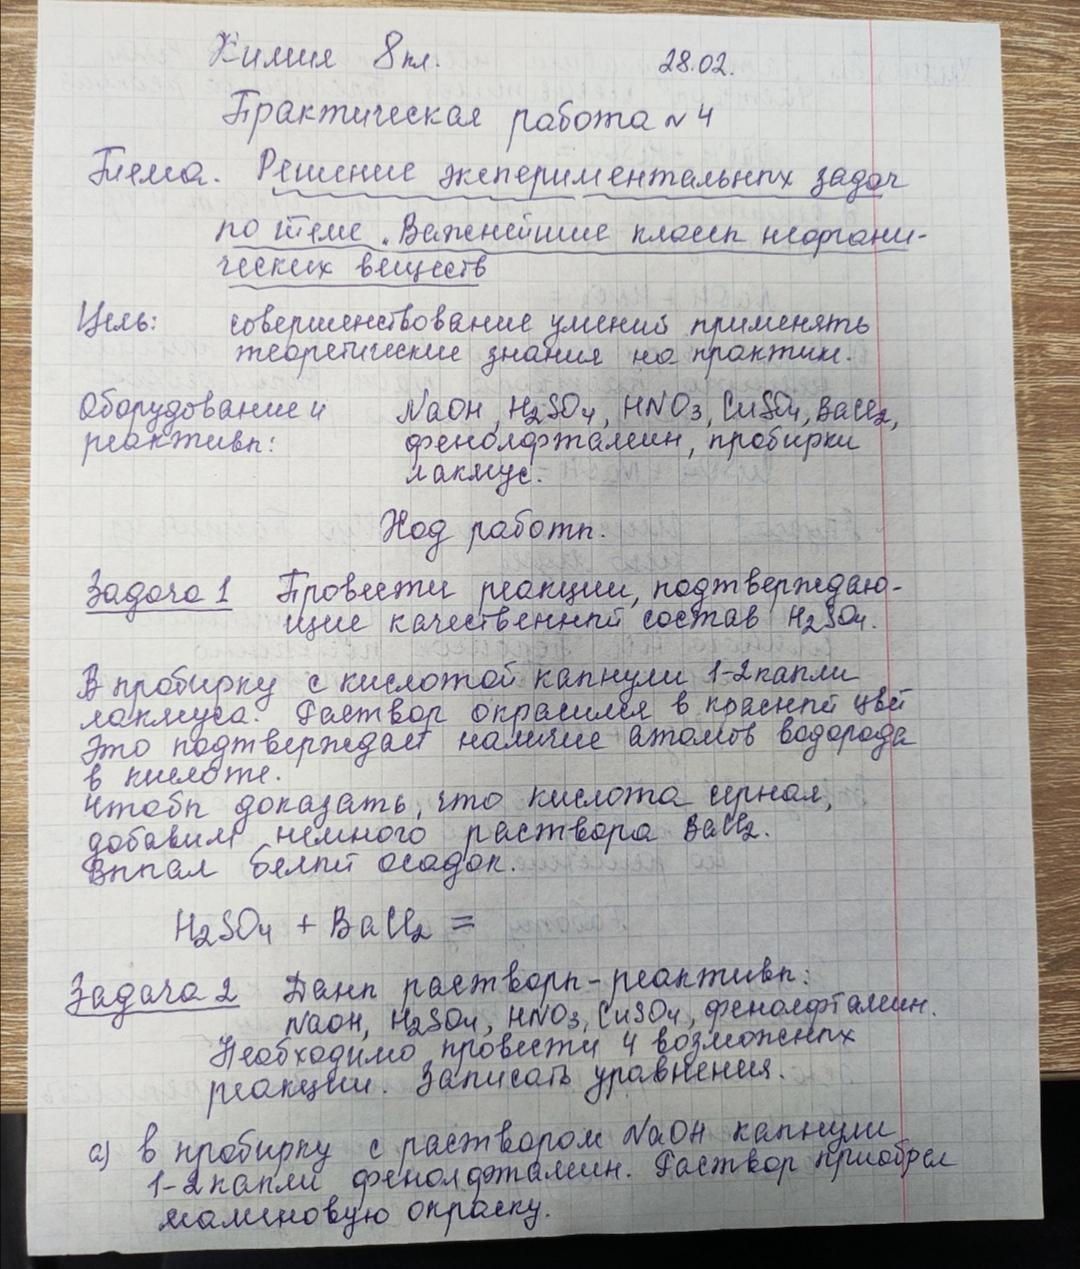 Химия 8 кл. 28.02.
Практическая работа №4
Тема. Решение экспериментальных задач
по теме „Важнейшие классы неоргани-
ческих веществ
Цель: совершенствование умений применять
теоретические знания на практике.
Оборудование и NaOH, H₂SO₄, HNO₃, CuSO₄, BaCl₂,
реактивы: фенолфталеин, пробирки
лакмус.
Ход работы.
Задача 1 Провести реакции, подтверждаю-
щие качественный состав H₂SO₄.
В пробирку с кислотой капнули 1-2 капли
лакмуса. Раствор окрасился в красный цвет
Это подтверждает наличие атомов водорода
в кислоте.
Чтобы доказать, что кислота серная,
добавим немного раствора BaCl₂.
Выпал белый осадок.
H₂SO₄ + BaCl₂ =
Задача 2 Даны растворы-реактивы:
NaOH, H₂SO₄, HNO₃, CuSO₄, фенолфталеин.
Необходимо провести 4 возможных
реакции. Записать уравнения.
а) В пробирку с раствором NaOH капнули
1-2 капли фенолфталеин. Раствор приобрел
малиновую окраску.